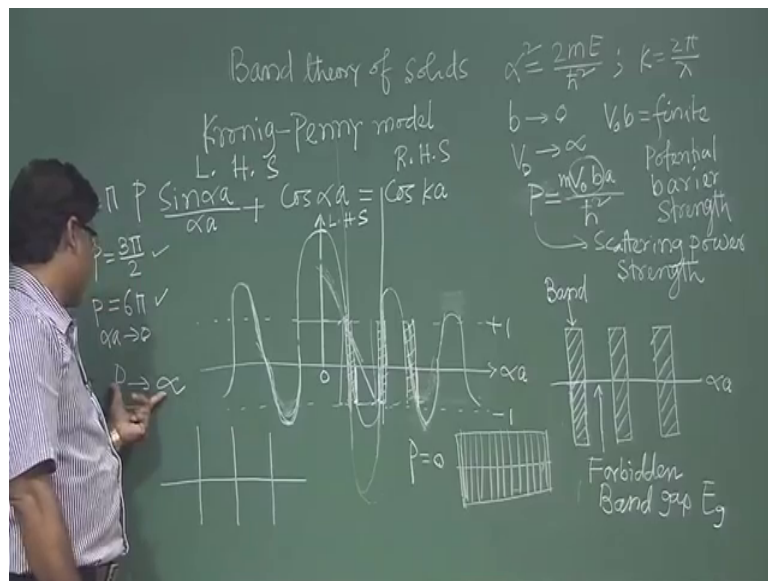 Band theory of solids
α² = 2mE/ħ² ; K = 2π/λ
Kronig-Penny model
b → 0 V₀b = finite
V₀ → ∝
L. H. S R.H.S
π P Sinαa/αa + Cos αa = Cos Ka
P = mV₀ba/ħ²
Potential
barrier
Strength
Scattering power
Strength
P = 3π/2 ✓
P = 6π ✓
αa → 0
P → ∝
L.H.S
+1
0
αa
-1
P = 0
Band
αa
Forbidden
Band gap Eg